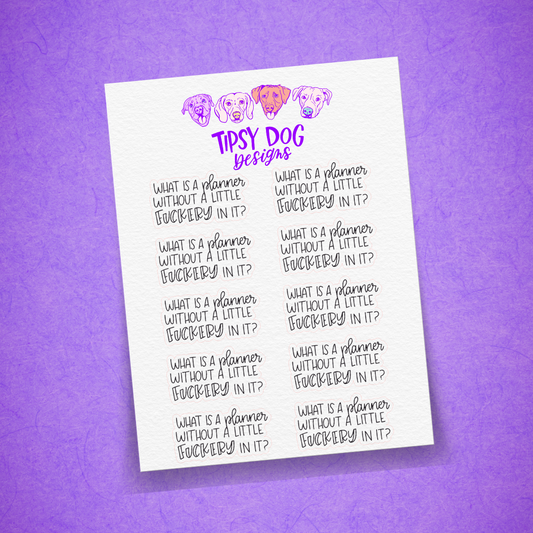 TIPSY DOG
Designs
WHAT IS A planner
WITHOUT A LITTLE
FUCKERY IN IT?
WHAT IS A planner
WITHOUT A LITTLE
FUCKERY IN IT?
WHAT IS A planner
WITHOUT A LITTLE
FUCKERY IN IT?
WHAT IS A planner
WITHOUT A LITTLE
FUCKERY IN IT?
WHAT IS A planner
WITHOUT A LITTLE
FUCKERY IN IT?
WHAT IS A planner
WITHOUT A LITTLE
FUCKERY IN IT?
WHAT IS A planner
WITHOUT A LITTLE
FUCKERY IN IT?
WHAT IS A planner
WITHOUT A LITTLE
FUCKERY IN IT?
WHAT IS A planner
WITHOUT A LITTLE
FUCKERY IN IT?
WHAT IS A planner
WITHOUT A LITTLE
FUCKERY IN IT?